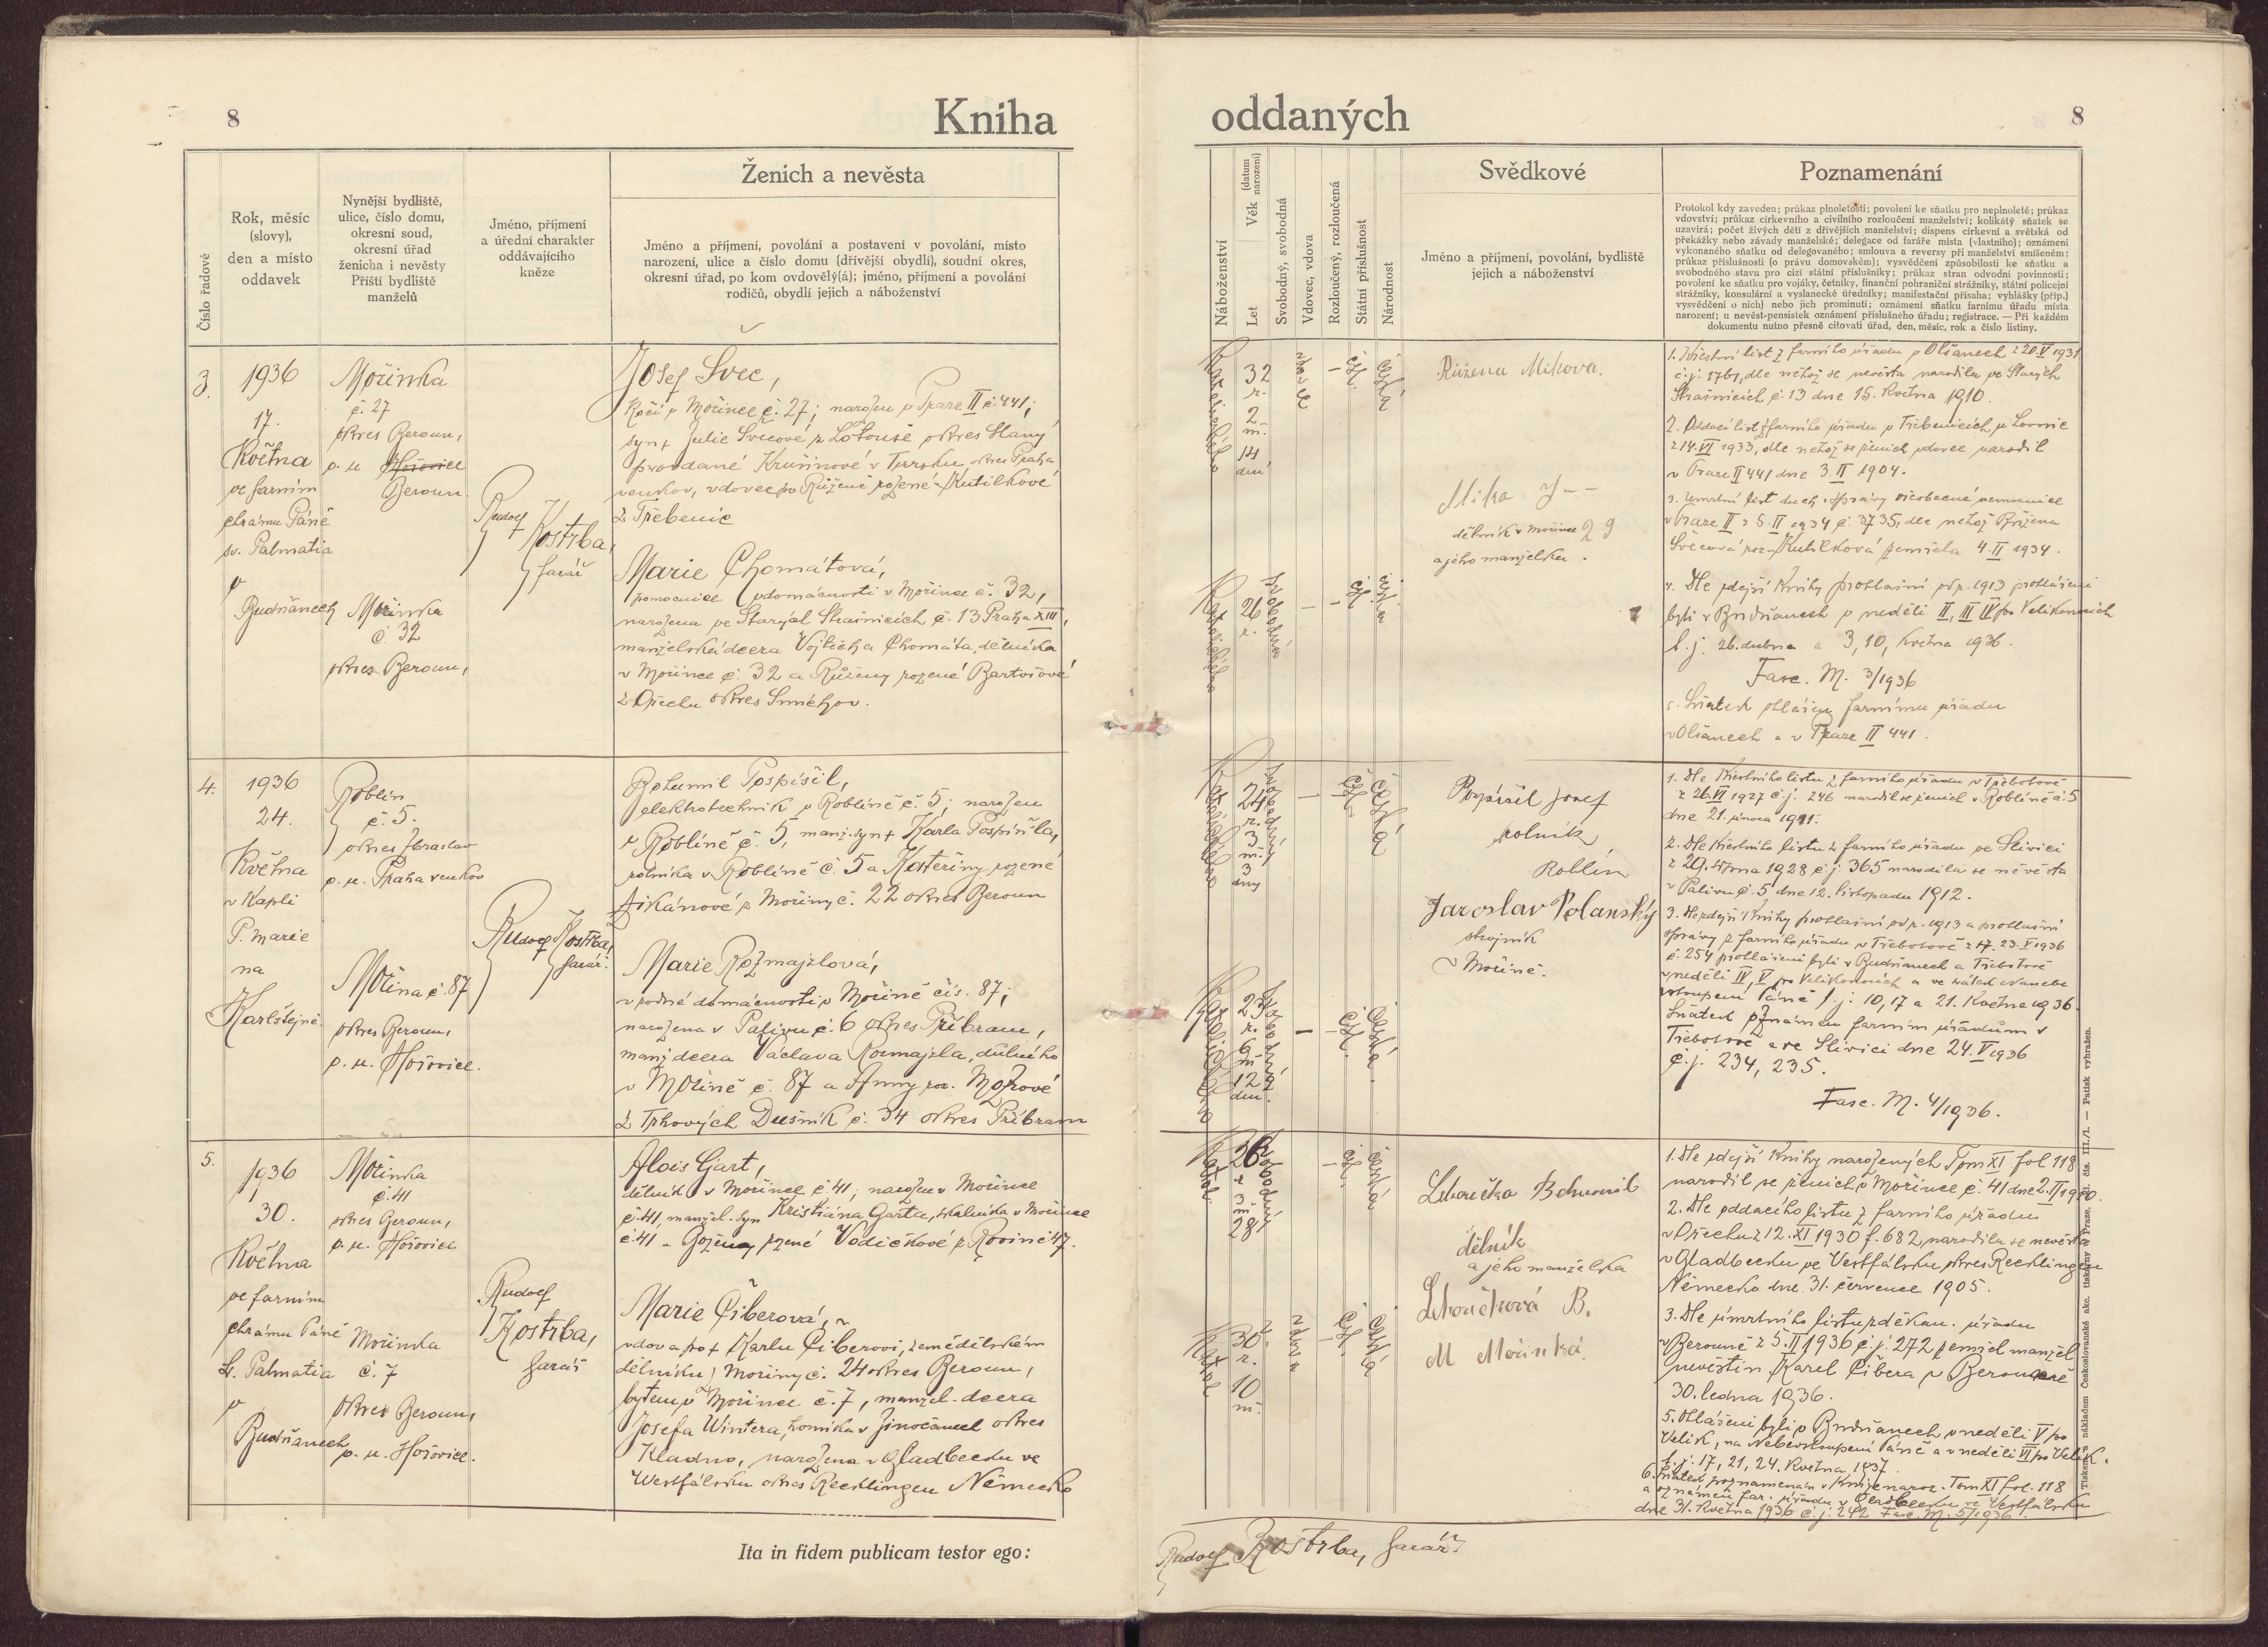 8
Kniha
Ženich a nevěsta
Číslo řadové
Rok, měsíc
(slovy),
den a místo
oddavek
Nynější bydliště,
ulice, číslo domu,
okresní soud,
okresní úřad
ženicha i nevěsty
Příští bydliště
manželů
Jméno, příjmení
a úřední charakter
oddávajícího
kněze
Jméno a příjmení, povolání a postavení v povolání, místo
narození, ulice a číslo domu (dřívější obydlí), soudní okres,
okresní úřad, po kom ovdovělý(á); jméno, příjmení a povolání
rodičů, obydlí jejich a náboženství
3.
1936
17.
Května
ve farním
chrámu Páně
sv. Palmatia
v
Budňanech
Mořinka
č. 27
okres Beroun,
p. u. Hořovice
Beroun.
Mořinka
č. 32
okres Beroun,
Rudolf
Kostrba,
farář
Josef Švec,
Kočí v Mořince č. 27; narozen v Praze II č. 441;
syn + Julie Švecové z Lotouše okres Slaný
provdané Krušinové v Tursku okres Praha
venkov, vdovec po Růženě rozené Kutilkové
z Třebenic
Marie Chomátová,
pomocnice v domácnosti v Mořince č. 32,
narozena ve Starých Strašnicích č. 13 Praha XIII,
manželská dcera Vojtěcha Chomáta, dělníka
v Mořince č. 32 a Růženy rozené Bartošové
z Ořechu okres Smíchov.
4.
1936
24.
Května
v Kapli
P. Marie
na
Karlštejně
Roblín
č. 5.
okres Zbraslav
p. u. Praha venkov
Mořina č. 87
okres Beroun,
p. u. Hořovice.
Rudolf Kostrba,
farář.
Bohumil Pospíšil,
elektrotechnik v Roblíně č. 5; narozen
v Roblíně č. 5, manž. syn + Karla Pospíšila,
rolníka v Roblíně č. 5 a Kateřiny rozené
z Mořiny č. 22 okres Beroun
Marie Rozmajzlová,
v rodné domácnosti v Mořině čís. 87;
narozena v Palivu č. 6 okres Příbram,
manž dcera Václava Rozmajzla, důlního
v Mořině č. 87 a Anny roz. Mozrové
z Trhových Dušník č. 34 okres Příbram
5.
1936
30.
Května
ve farním
chrámu Páně
S. Palmatia
v
Budňanech
Mořinka
č. 41
okres Beroun,
p. u. Hořovice
Mořinka
č. 7
okres Beroun,
p. u. Hořovice.
Rudolf
Kostrba,
farář
Alois Gart,
dělník v Mořince č. 41; narozen v Mořince
č. 41, manžel. syn Kristiána Garta, skalníka v Mořince
č. 41 a Boženy rozené Vodičkové z Roviné 47.
Marie Čiberová,
vdova po + Karlu Čiberovi, zemědělském
dělníku z Mořiny č. 24 okres Beroun,
bytem v Mořince č. 7, manžel. dcera
Josefa Wintera, horníka v Jinočanech okres
Kladno, narozena v Gladbecku ve
Westfálsku okres Recklingen Německo
Ita in fidem publicam testor ego:
oddaných
8
Náboženství
Let
Věk (datum narození)
Svobodný, svobodná
Vdovec, vdova
Rozloučený, rozloučená
Státní příslušnost
Národnost
Svědkové
Jméno a příjmení, povolání, bydliště
jejich a náboženství
Poznamenání
Protokol kdy zaveden; průkaz plnoletosti; povolení ke sňatku pro neplnoleté; průkaz
vdovství; průkaz církevního a civilního rozloučení manželství; kolikátý sňatek se
uzavírá; počet živých dětí z dřívějších manželství; dispens církevní a světská od
překážky nebo závady manželské; delegace od faráře místa (vlastního); oznámení
vykonaného sňatku od delegovaného; smlouva a reversy při manželství smíšeném;
průkaz příslušnosti (o právu domovském); vysvědčení způsobilosti ke sňatku a
svobodného stavu pro cizí státní příslušníky; průkaz stran odvodní povinnosti;
povolení ke sňatku pro vojáky, četníky, finanční pohraniční strážníky, státní policejní
strážníky, konsulární a vyslanecké úředníky; manifestační přísaha; vyhlášky (příp.
vysvědčení o nich) nebo jich prominutí; oznámení sňatku farnímu úřadu místa
narození; u nevěst-pensistek oznámení příslušného úřadu; registrace. — Při každém
dokumentu nutno přesně citovati úřad, den, měsíc, rok a číslo listiny.
32
r.
2
m.
14
dní
vdovec
čsl.
česká
Růžena Mikova.
Mika J
dělník v Mořince 29
a jeho manželka.
26
r.
svobodná
čsl.
1. Křestní list z farního úřadu v Olšanech z 20. V 1931
č. j. 1761, dle něhož se nevěsta narodila ve Starých
Strašnicích č. 13 dne 15. Května 1910.
2. Oddací list z farního úřadu v Třebenicích u Lovosic
z 14. VI 1933, dle něhož se ženich vdovec narodil
v Praze II 441 dne 3. II 1904.
3. Úmrtní list duch. správy všeobecné nemocnice
v Praze II z 5. II 1934 č. 3735, dle něhož Růžena
Švecová roz. Kutilková zemřela 4. II 1934.
4. Dle zdejší Knihy prohlášní od r. 1913 prohlášeni
byli v Budňanech v neděli II, III IV po Velikonocích
t. j. 26. dubna a 3, 10, května 1936.
Fasc. M. 3/1936
5. Sňatek ohlášen farnímu úřadu
v Olšanech a v Praze II 441.
24
r.
3
m.
3
dny
svobodný
čsl.
česká
Pospíšil Josef
rolník
Roblín
Jaroslav Polanský
strojník
v Mořině.
23
r.
6
m
12
dní.
svobodná
čsl.
česká
1. Dle Křestního listu z farního úřadu v Třebotově
z 26. VI 1927 č. j. 246 narodil se ženich v Roblíně č. 5
dne 21. února 1911.
2. Dle Křestního listu z farního úřadu ve Slivici
z 29. srpna 1928 č. j. 365 narodila se nevěsta
v Palivu č. 5 dne 12. listopadu 1912.
3. Dle zdejší Knihy prohlášní od r. 1913 a prohlášní
zprávy z farního úřadu v Třebotově z 23. V 1936
č. 254 prohlášeni byli v Budňanech a Třebotově
v neděli IV, V po Velikonocích a ve svátek Nanebe
vstoupení Páně t. j. 10, 17 a 21. Května 1936.
Sňatek oznámen farním úřadům v
Třebotově a ve Slivici dne 24. V 1936
č. j. 234, 235.
Fasc. M. 4/1936.
26
r
3
m
28
svobodný
čsl.
česká
Lhoučka Bohumil
dělník
a jeho manželka
Lhoučková B.
M Mořinká.
30
r.
10
m.
vdova
čsl.
česká
1. Dle zdejší Knihy narozených Tom XI fol 118
narodil se ženich v Mořince č. 41 dne 2. II 1910.
2. Dle oddacího listu z farního úřadu
v Ořechu z 12. XI 1930 f. 682, narodila se nevěsta
v Gladbecku ve Vestfálsku okres Recklingen
Německo dne 31. července 1905.
3. Dle úmrtního listu z děkan. úřadu
v Berouně z 5. II 1936 č. j. 272 zemřel manžel
nevěstin Karel Čibera v Berouně
30. ledna 1936.
5. Ohlášeni byli v Budňanech v neděli V po
Velik, na Nebevstoupení Páně a v neděli VI po Velik.
t. j. 17, 21, 24. Května 1937.
6. Sňatek poznamenán v Knize naroz. Tom XI fol. 118
a oznámen far. úřadu v Gladbecku ve Vestfálsku
dne 31. Května 1936 č. j. 242 Fasc. M. 5/1936.
Rudolf Kostrba, farář.